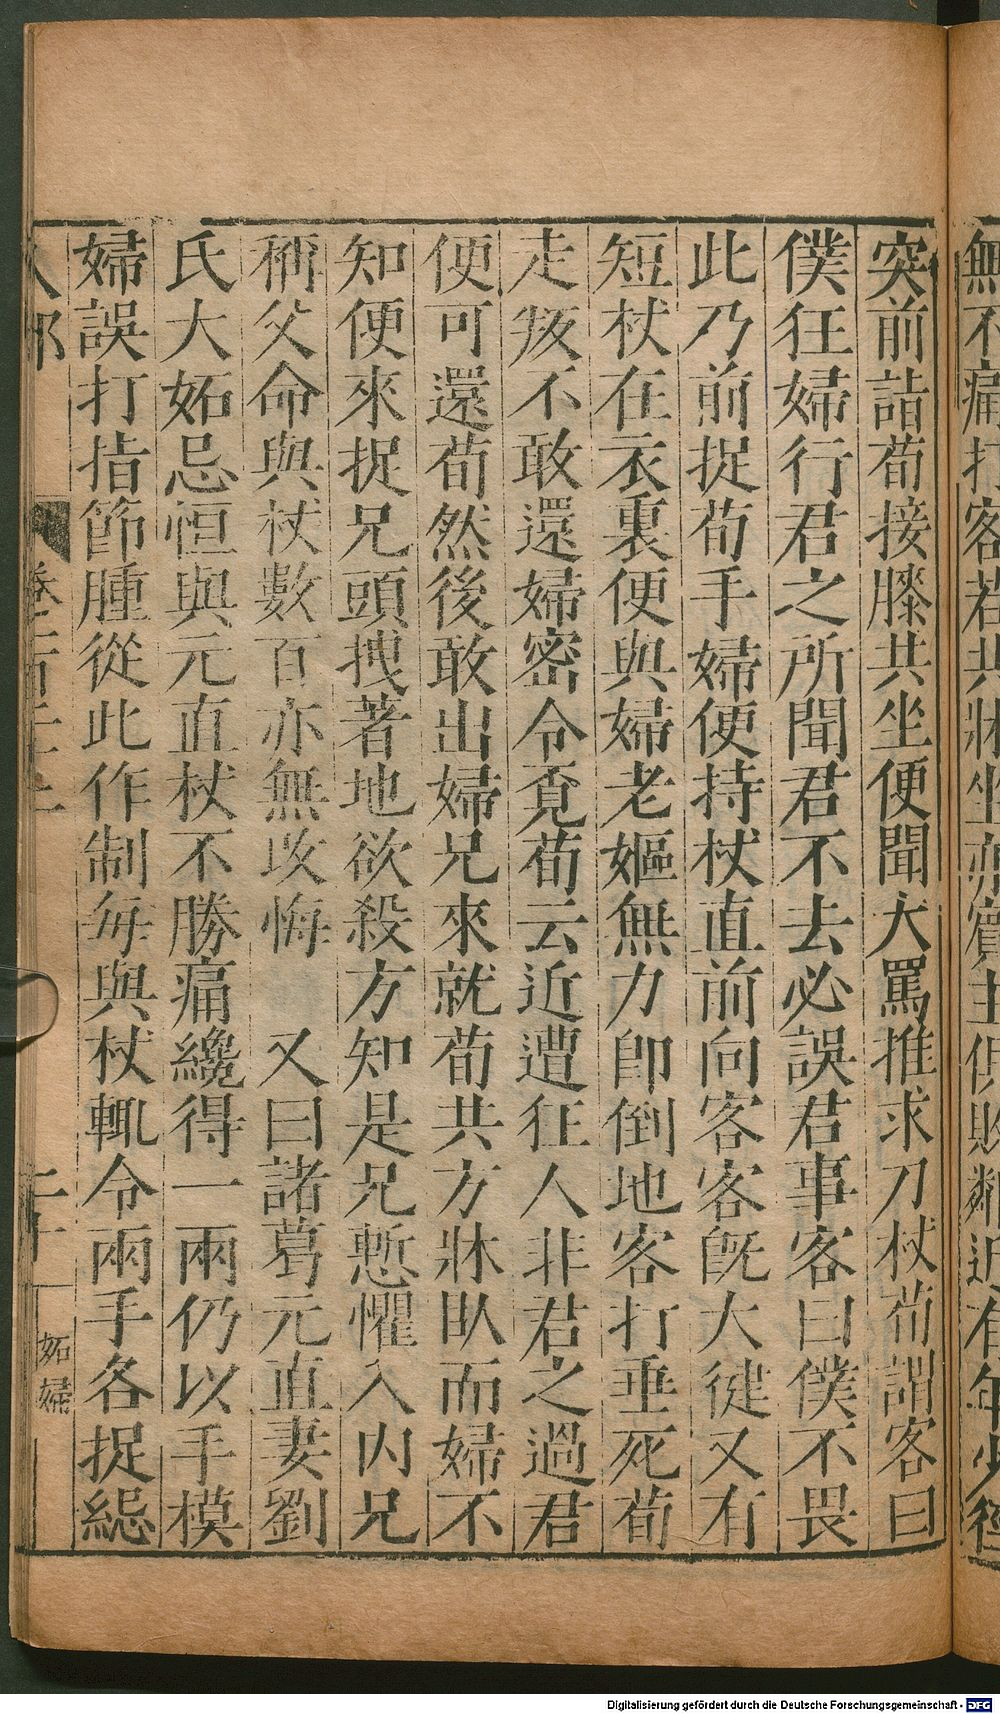 無不痛打客若共牀坐亦賓主俱敗鄰近有年少徑
突前詣荀接膝共坐便聞大罵推求刀杖荀謂客曰
僕狂婦行君之所聞君不去必誤君事客曰僕不畏
此乃前捉荀手婦便持杖直前向客客旣大健又有
短杖在衣裏便與婦老嫗無力即倒地客打垂死荀
走叛不敢還婦密令覓荀云近遭狂人非君之過君
便可還荀然後敢出婦兄來就荀共方牀臥而婦不
知便來捉兄頭拽著地欲殺方知是兄慙懼入內兄
稱父命與杖數百亦無改悔 又曰諸葛元直妻劉
氏大妬忌恒與元直杖不勝痛纔得一兩仍以手模
婦誤打指節腫從此作制每與杖輒令兩手各捉緦
人部
二十
妬婦
Digitalisierung gefördert durch die Deutsche Forschungsgemeinschaft - DFG